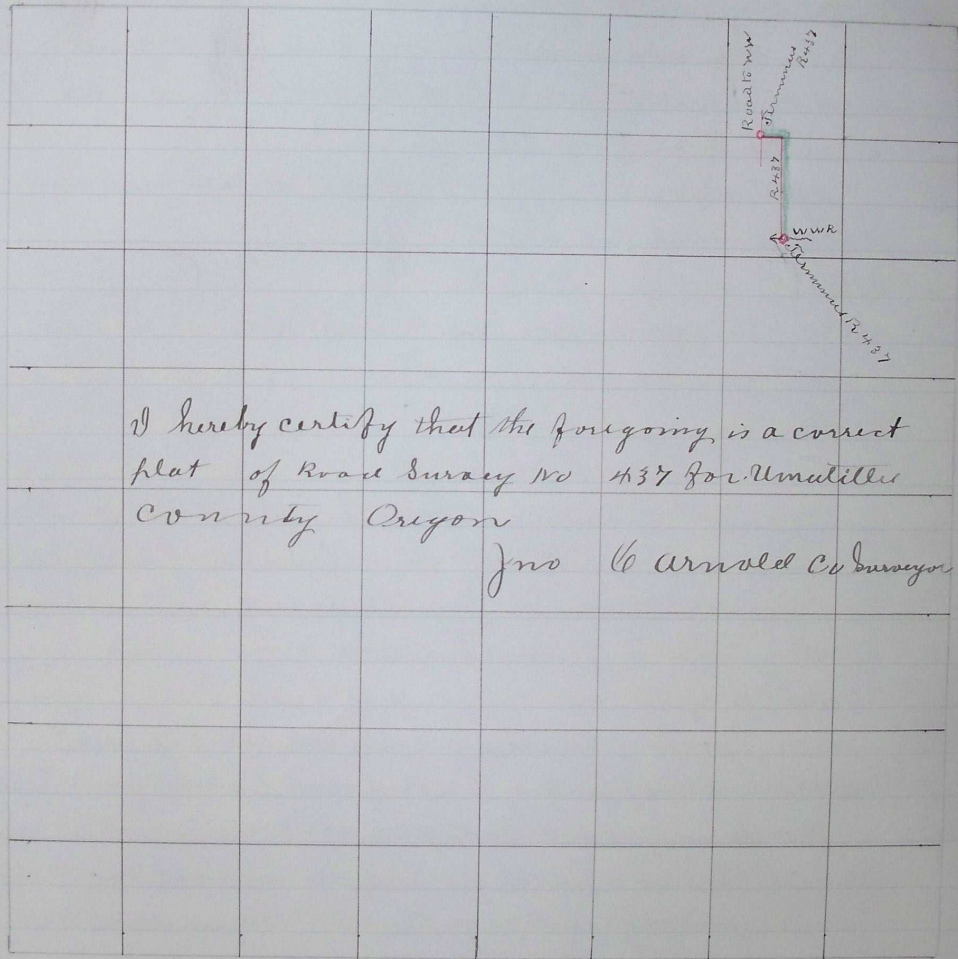 Road to
Terminus
R437
R437
WWR
Terminus R437
I hereby certify that the foregoing is a correct
plat of Road Survey No 437 for Umatilla
County Oregon
Jno C Arnold Co Surveyor